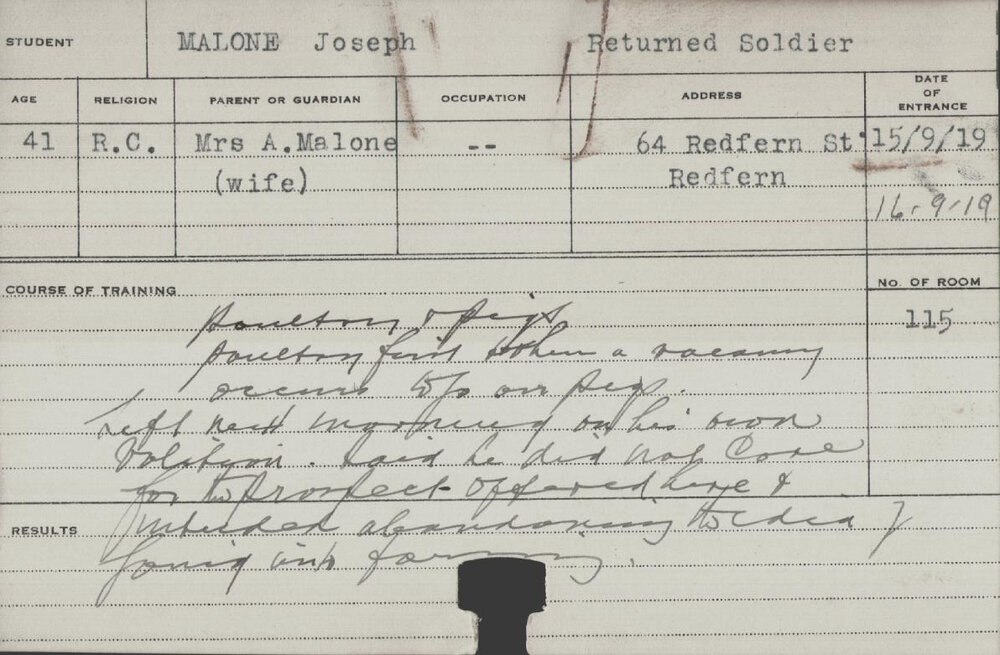 STUDENT MALONE Joseph Returned Soldier
AGE RELIGION PARENT OR GUARDIAN OCCUPATION ADDRESS DATE OF ENTRANCE
41 R.C. Mrs A.Malone -- 64 Redfern St 15/9/19
(wife) Redfern
16-9-19
COURSE OF TRAINING No. OF ROOM
Poultry & Pigs 115
Poultry first when a vacancy
occurs to go on pigs.
Left next morning on his own
Volition. Said he did not Care
for the prospect offered here &
RESULTS intended abandoning the idea of
going into farming.